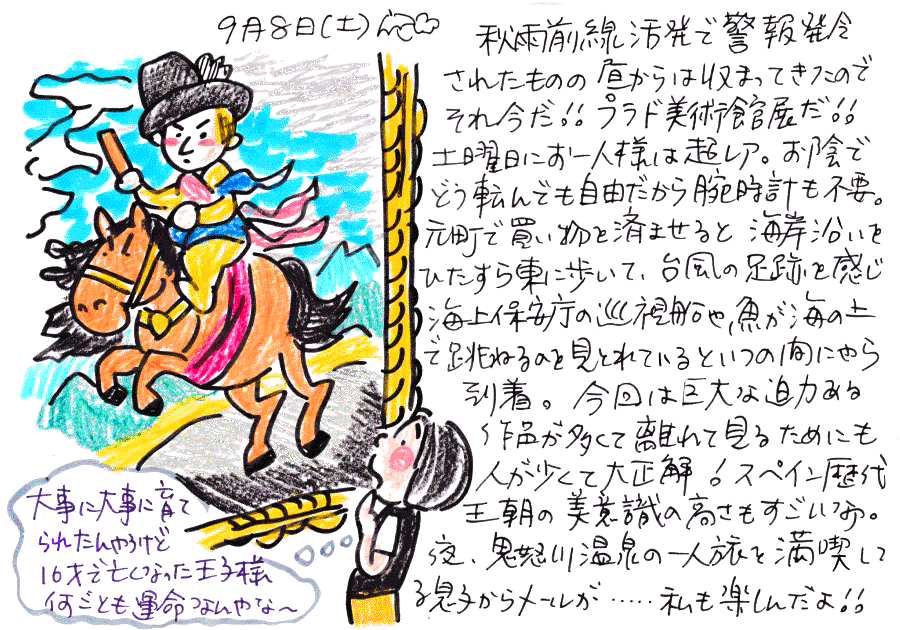 9月8日(土)
秋雨前線活発で警報発令
されたものの昼からは収まってきたので
それ今だ!!プラド美術館展だ!!
土曜日にお一人様は超レア。お陰で
どう転んでも自由だから腕時計も不要。
元町で買い物を済ませると海岸沿いを
ひたすら東に歩いて、台風の足跡を感じ
海上保安庁の巡視船や、魚が海の上
で跳ねるのを見とれているといつの間にやら
到着。今回は巨大な迫力ある
作品が多くて離れて見るためにも
人が少くて大正解!スペイン歴代
王朝の美意識の高さもすごいわ。
夜、鬼怒川温泉の一人旅を満喫して
る息子からメールが……私も楽しんだよ!!
大事に大事に育て
られたんやろけど
16才で亡くなった王子様
何ごとも運命なんやな〜